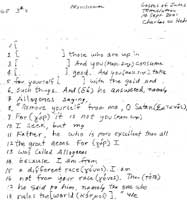 Allogenes
Gospel of Judas
Translation
14 Sept 2001
Charles W. Hedrick
1 [
2 [ ] those who are up in
3 [ ] And you (masc. sing.) consume
4 [ ] good. And you (masc. sing.) take
5 for yourself [ ] with the gold and
6 such things. And (δέ) he answered, namely
7 Allogenes saying,
8 "Remove yourself from me, O Satan
9 For (γάρ) it is not you (masc. sing.)
10 I seek, but my
11 Father, he who is more excellent than all
12 the great aeons. For (γάρ) I
13 was called Allogenes
14 because I am from
15 a different race (γένος). I am
16 not from your race (γένος). Then (τότε)
17 he said to him, namely the one who
18 rules the [world (κόσμος)] "we